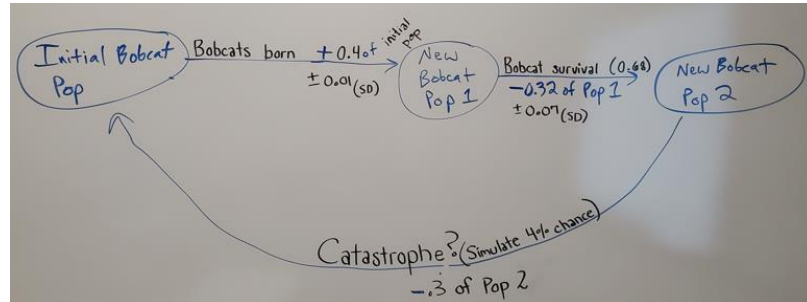 Initial Bobcat
Pop
Bobcats born
+0.4 of initial pop
±0.01 (SD)
New
Bobcat
Pop 1
Bobcat survival (0.68)
-0.32 of Pop 1
±0.07 (SD)
New Bobcat
Pop 2
Catastrophe? (Simulate 4% chance)
-.3 of Pop 2